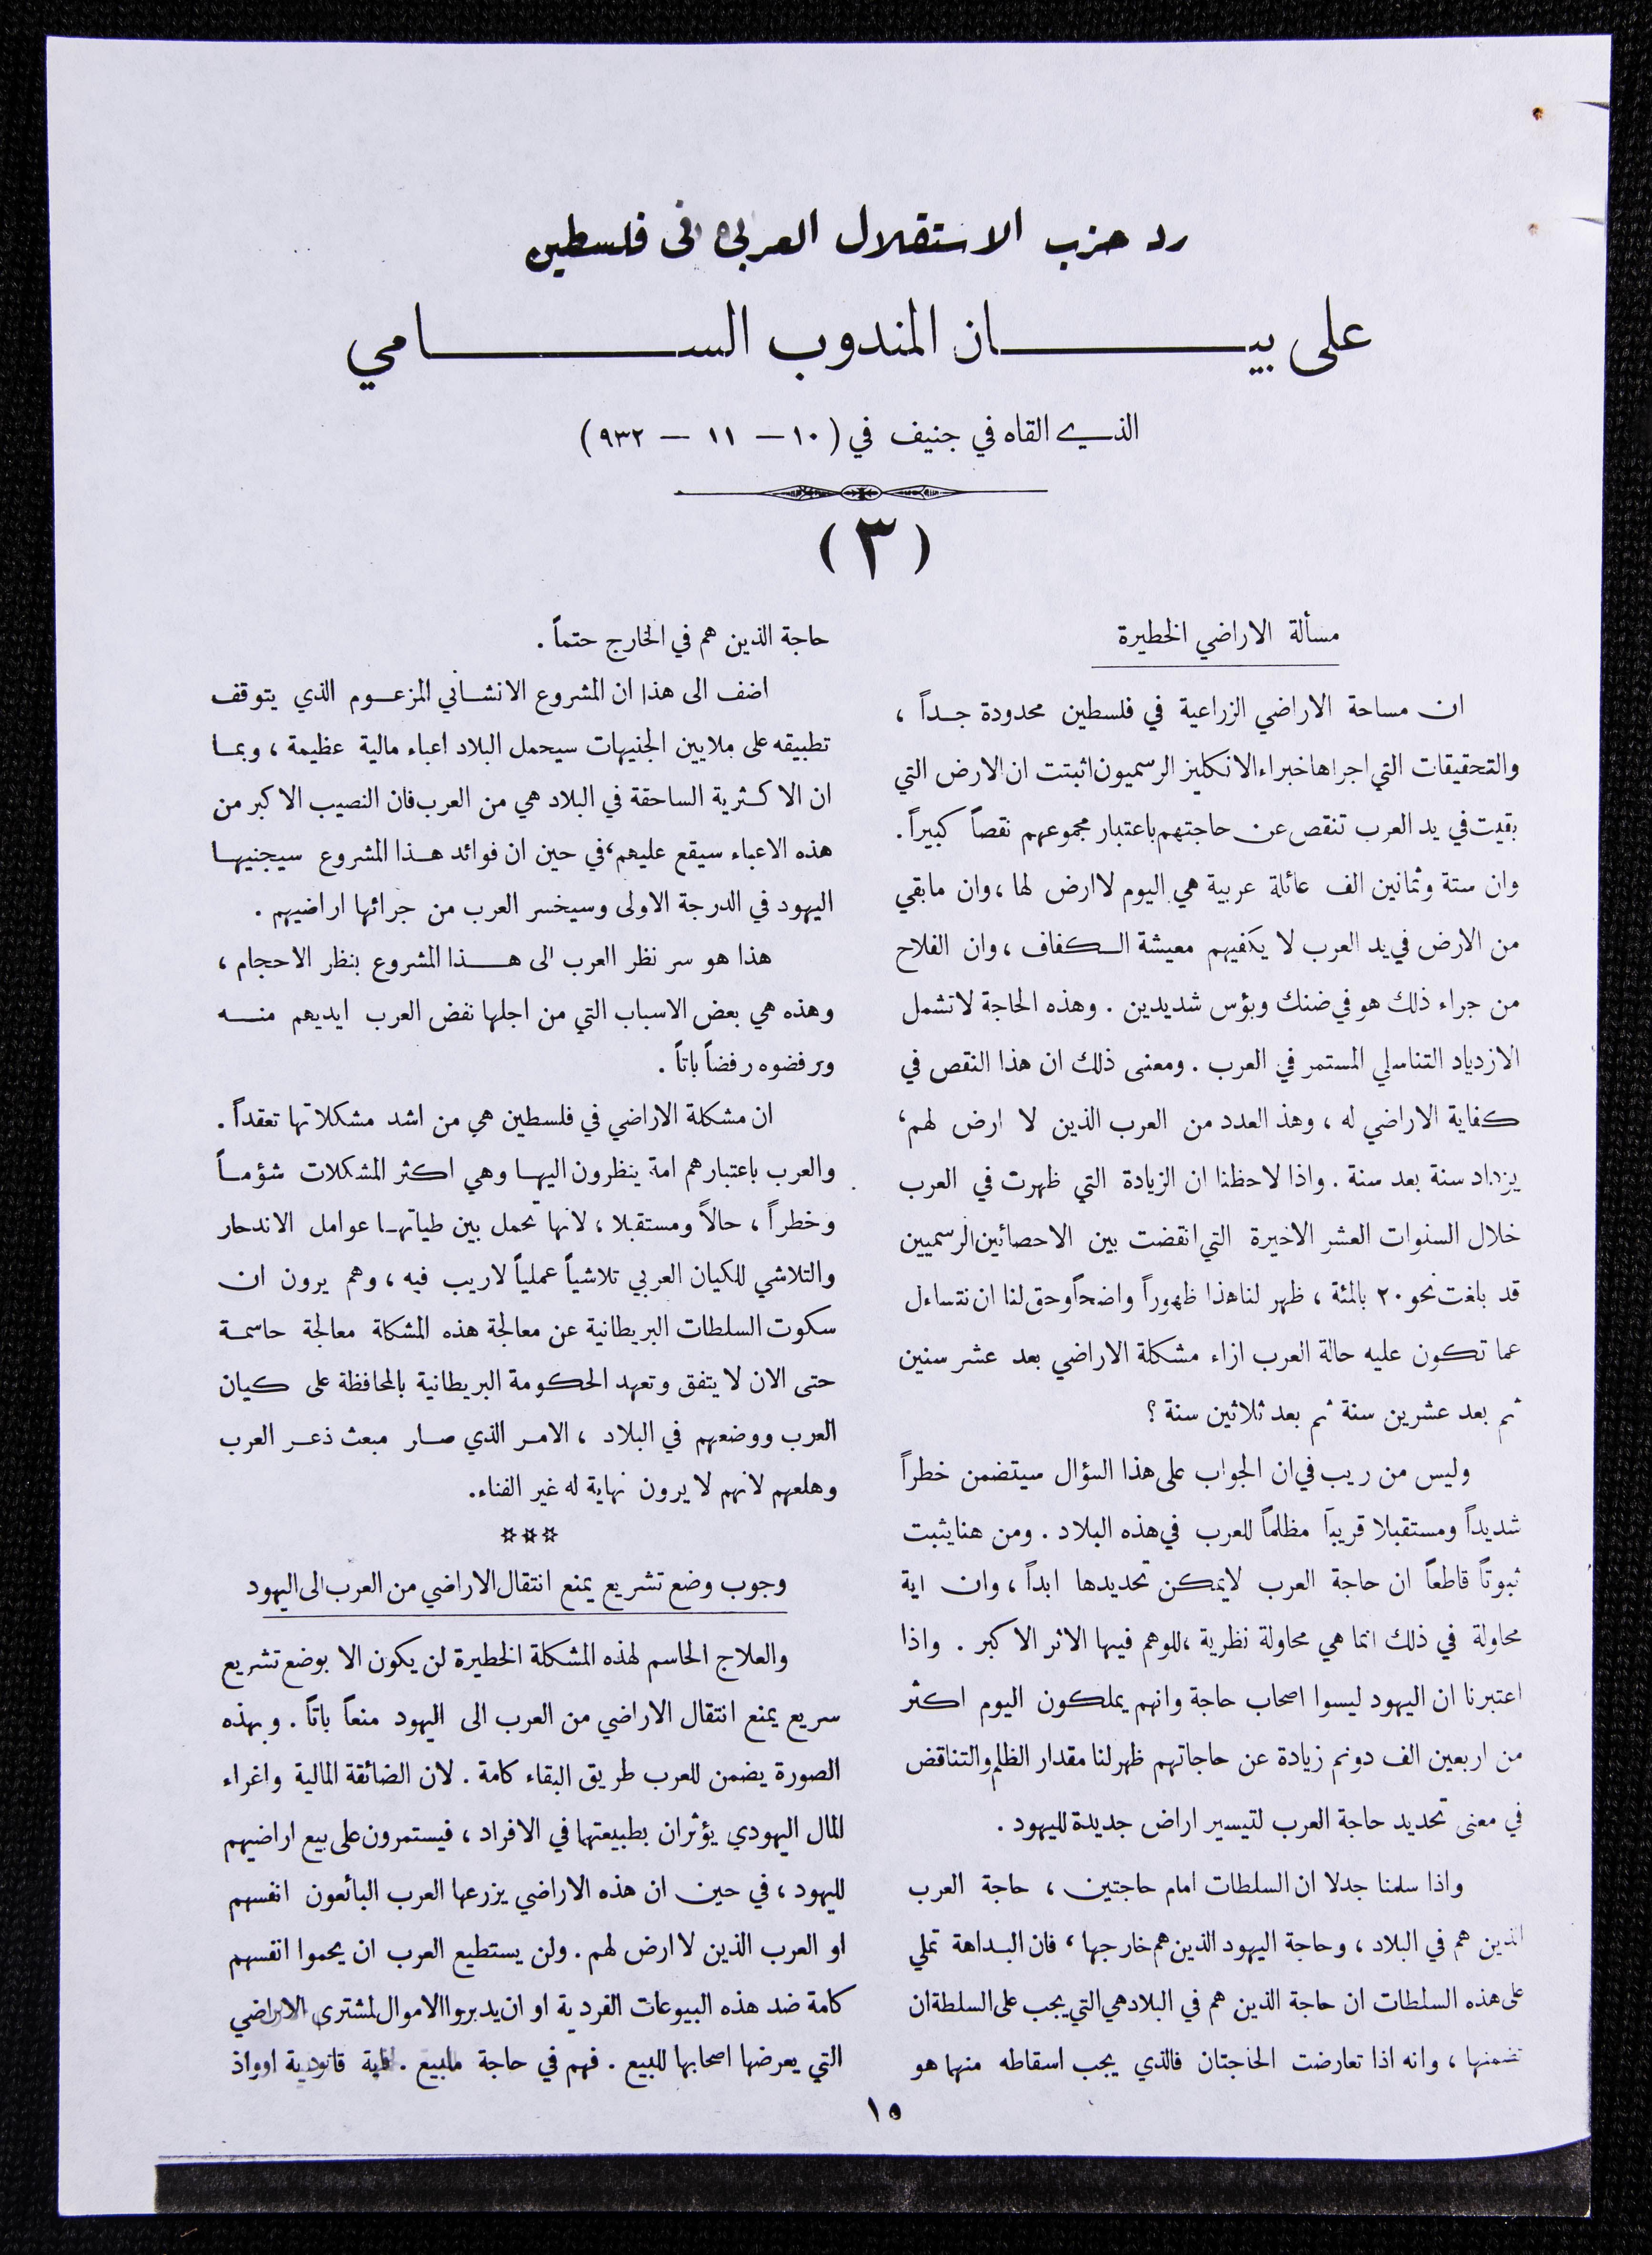 رد حزب الاستقلال العربي في فلسطين
على بيان المندوب السامي
الذي القاه في جنيف في (١٠ — ١١ — ٩٣٢)
(٣)
مسألة الاراضي الخطيرة
ان مساحة الاراضي الزراعية في فلسطين محدودة جداً ،
والتحقيقات التي اجراها خبراء الانكليز الرسميون اثبتت ان الارض التي
بقيت في يد العرب تنقص عن حاجتهم باعتبار مجموعهم نقصاً كبيراً .
وان ستة وثمانين الف عائلة عربية هي اليوم لا ارض لها ، وان ما بقي
من الارض في يد العرب لا يكفيهم معيشة الكفاف ، وان الفلاح
من جراء ذلك هو في ضنك وبؤس شديدين . وهذه الحاجة لا تشمل
الازدياد التناسلي المستمر في العرب . ومعنى ذلك ان هذا النقص في
كفاية الاراضي له ، وهذ العدد من العرب الذين لا ارض لهم ،
يزداد سنة بعد سنة . واذا لاحظنا ان الزيادة التي ظهرت في العرب
خلال السنوات العشر الاخيرة التي انقضت بين الاحصائين الرسميين
قد بلغت نحو ٢٠ بالمئة ، ظهر لنا هذا ظهوراً واضحاً وحق لنا ان نتساءل
عما تكون عليه حالة العرب ازاء مشكلة الاراضي بعد عشر سنين
ثم بعد عشرين سنة ثم بعد ثلاثين سنة ؟
وليس من ريب في ان الجواب على هذا السؤال سيتضمن خطراً
شديداً ومستقبلا قريباً مظلماً للعرب في هذه البلاد . ومن هنا يثبت
ثبوتاً قاطعاً ان حاجة العرب لا يمكن تحديدها ابداً ، وان اية
محاولة في ذلك انما هي محاولة نظرية ، للوهم فيها الاثر الاكبر . واذا
اعتبرنا ان اليهود ليسوا اصحاب حاجة وانهم يملكون اليوم اكثر
من اربعين الف دونم زيادة عن حاجاتهم ظهر لنا مقدار الظلم والتناقض
في معنى تحديد حاجة العرب لتيسير اراض جديدة لليهود .
واذا سلمنا جدلا ان السلطات امام حاجتين ، حاجة العرب
الذين هم في البلاد ، وحاجة اليهود الذين هم خارجها ، فان البداهة تملي
على هذه السلطات ان حاجة الذين هم في البلاد هي التي يجب على السلطة ان
تضمنها ، وانه اذا تعارضت الحاجتان فالذي يجب اسقاطه منهما هو
حاجة الذين هم في الخارج حتماً .
اضف الى هذا ان المشروع الانشائي المزعوم الذي يتوقف
تطبيقه على ملايين الجنيهات سيحمل البلاد اعباء مالية عظيمة ، وبما
ان الاكثرية الساحقة في البلاد هي من العرب فان النصيب الاكبر من
هذه الاعباء سيقع عليهم ، في حين ان فوائد هذا المشروع سيجنيها
اليهود في الدرجة الاولى وسيخسر العرب من جرائها اراضيهم .
هذا هو سر نظر العرب الى هذا المشروع بنظر الاحجام ،
وهذه هي بعض الاسباب التي من اجلها نفض العرب ايديهم منه
ورفضوه رفضاً باتاً .
ان مشكلة الاراضي في فلسطين هي من اشد مشكلاتها تعقداً .
والعرب باعتبارهم امة ينظرون اليها وهي اكثر المشكلات شؤماً
وخطراً ، حالاً ومستقبلا ، لانها تحمل بين طياتها عوامل الاندحار
والتلاشي للكيان العربي تلاشياً عملياً لا ريب فيه ، وهم يرون ان
سكوت السلطات البريطانية عن معالجة هذه المشكلة معالجة حاسمة
حتى الان لا يتفق وتعهد الحكومة البريطانية بالمحافظة على كيان
العرب ووضعهم في البلاد ، الامر الذي صار مبعث ذعر العرب
وهلعهم لانهم لا يرون نهاية له غير الفناء.
***
وجوب وضع تشريع يمنع انتقال الاراضي من العرب الى اليهود
والعلاج الحاسم لهذه المشكلة الخطيرة لن يكون الا بوضع تشريع
سريع يمنع انتقال الاراضي من العرب الى اليهود منعاً باتاً . وبهذه
الصورة يضمن للعرب طريق البقاء كامة . لان الضائقة المالية واغراء
المال اليهودي يؤثران بطبيعتهما في الافراد ، فيستمرون على بيع اراضيهم
لليهود ، في حين ان هذه الاراضي يزرعها العرب البائعون انفسهم
او العرب الذين لا ارض لهم . ولن يستطيع العرب ان يحموا انفسهم
كامة ضد هذه البيوعات الفردية او ان يدبروا الاموال لمشترى الاراضي
التي يعرضها اصحابها للبيع . فهم في حاجة قانونية اوواذ
١٥